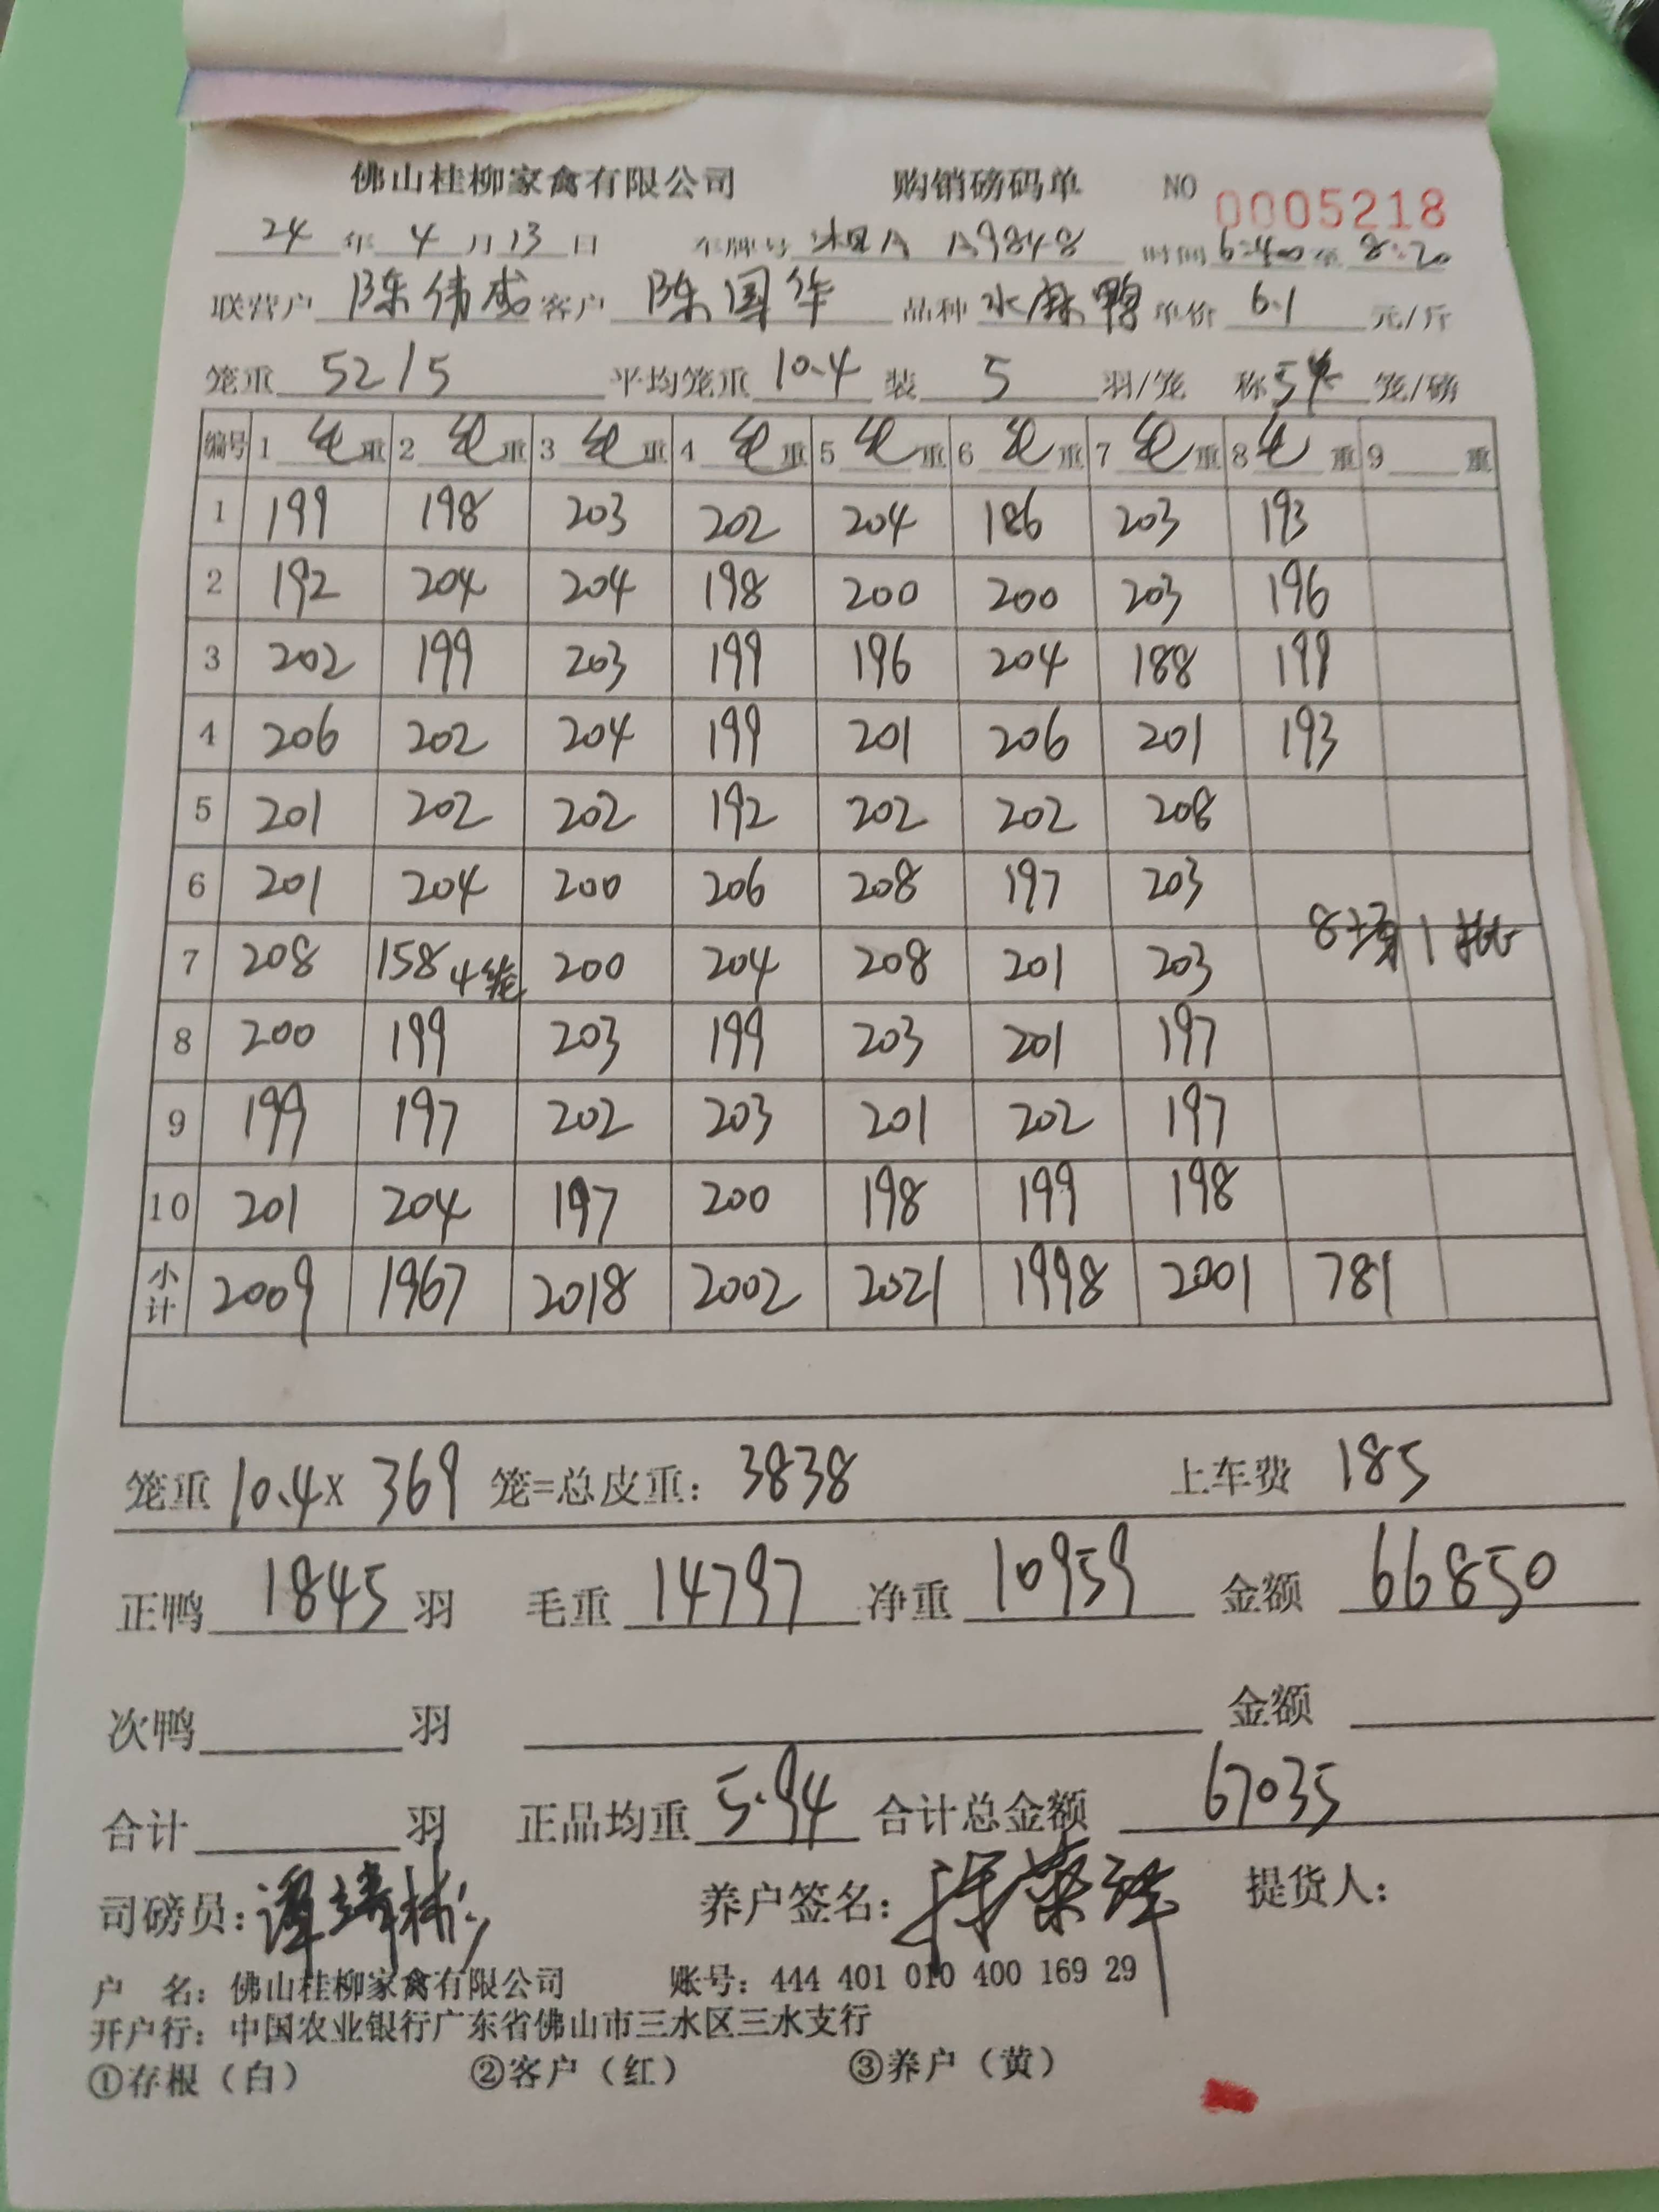 佛山桂柳家禽有限公司 购销磅码单 NO 0005218
24 年 4 月 13 日 车牌号 湘A A9848 时间 6:40 至 8:20
联营户 陈伟成 客户 陈国华 品种 水麻鸭 单价 6.1 元/斤
笼重 52/5 平均笼重 10.4 装 5 羽/笼 称 5 笼/磅
编号 1 毛重 2 毛重 3 毛重 4 毛重 5 毛重 6 毛重 7 毛重 8 毛重 9 重
1 199 198 203 202 204 186 203 193
2 192 204 204 198 200 200 203 196
3 202 199 203 199 196 204 188 199
4 206 202 204 199 201 206 201 193
5 201 202 202 192 202 202 208
6 201 204 200 206 208 197 203
7 208 158 4笼 200 204 208 201 203 8场1批
8 200 199 203 199 203 201 197
9 199 197 202 203 201 202 197
10 201 204 197 200 198 199 198
小计 2009 1967 2018 2002 2021 1998 2001 781
笼重 10.4 x 369 笼=总皮重: 3838 上车费 185
正鸭 1845 羽 毛重 14797 净重 10959 金额 66850
次鸭 羽 金额
合计 羽 正品均重 5.94 合计总金额 67035
司磅员: 养户签名: 提货人:
户 名: 佛山桂柳家禽有限公司 账号: 444 401 010 400 169 29
开户行: 中国农业银行广东省佛山市三水区三水支行
①存根（白） ②客户（红） ③养户（黄）